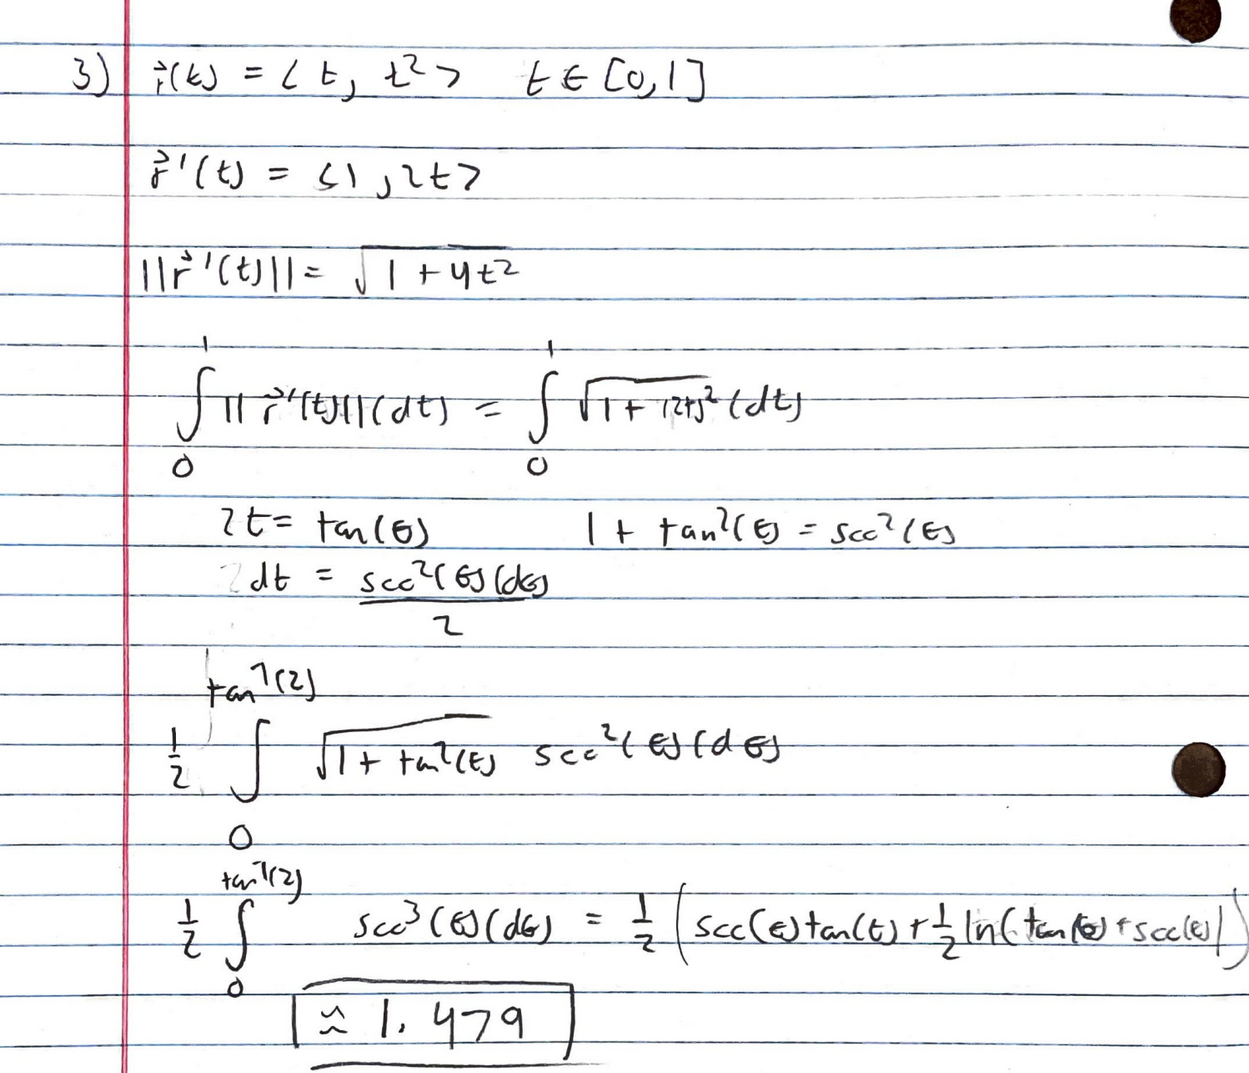 3) r⃗(t) = ⟨t, t²⟩   t ∈ [0,1]
r⃗'(t) = ⟨1, 2t⟩
||r⃗'(t)|| = √(1 + 4t²)
∫₀¹ ||r⃗'(t)|| (dt) = ∫₀¹ √(1 + (2t)²) (dt)
2t = tan(θ)   1 + tan²(θ) = sec²(θ)
dt = sec²(θ)(dθ) / 2
1/2 ∫₀^(tan⁻¹(2)) √(1 + tan²(θ)) sec²(θ)(dθ)
1/2 ∫₀^(tan⁻¹(2)) sec³(θ)(dθ) = 1/2 (sec(θ)tan(θ) + 1/2 ln(tan(θ) + sec(θ)|)
≈ 1.479